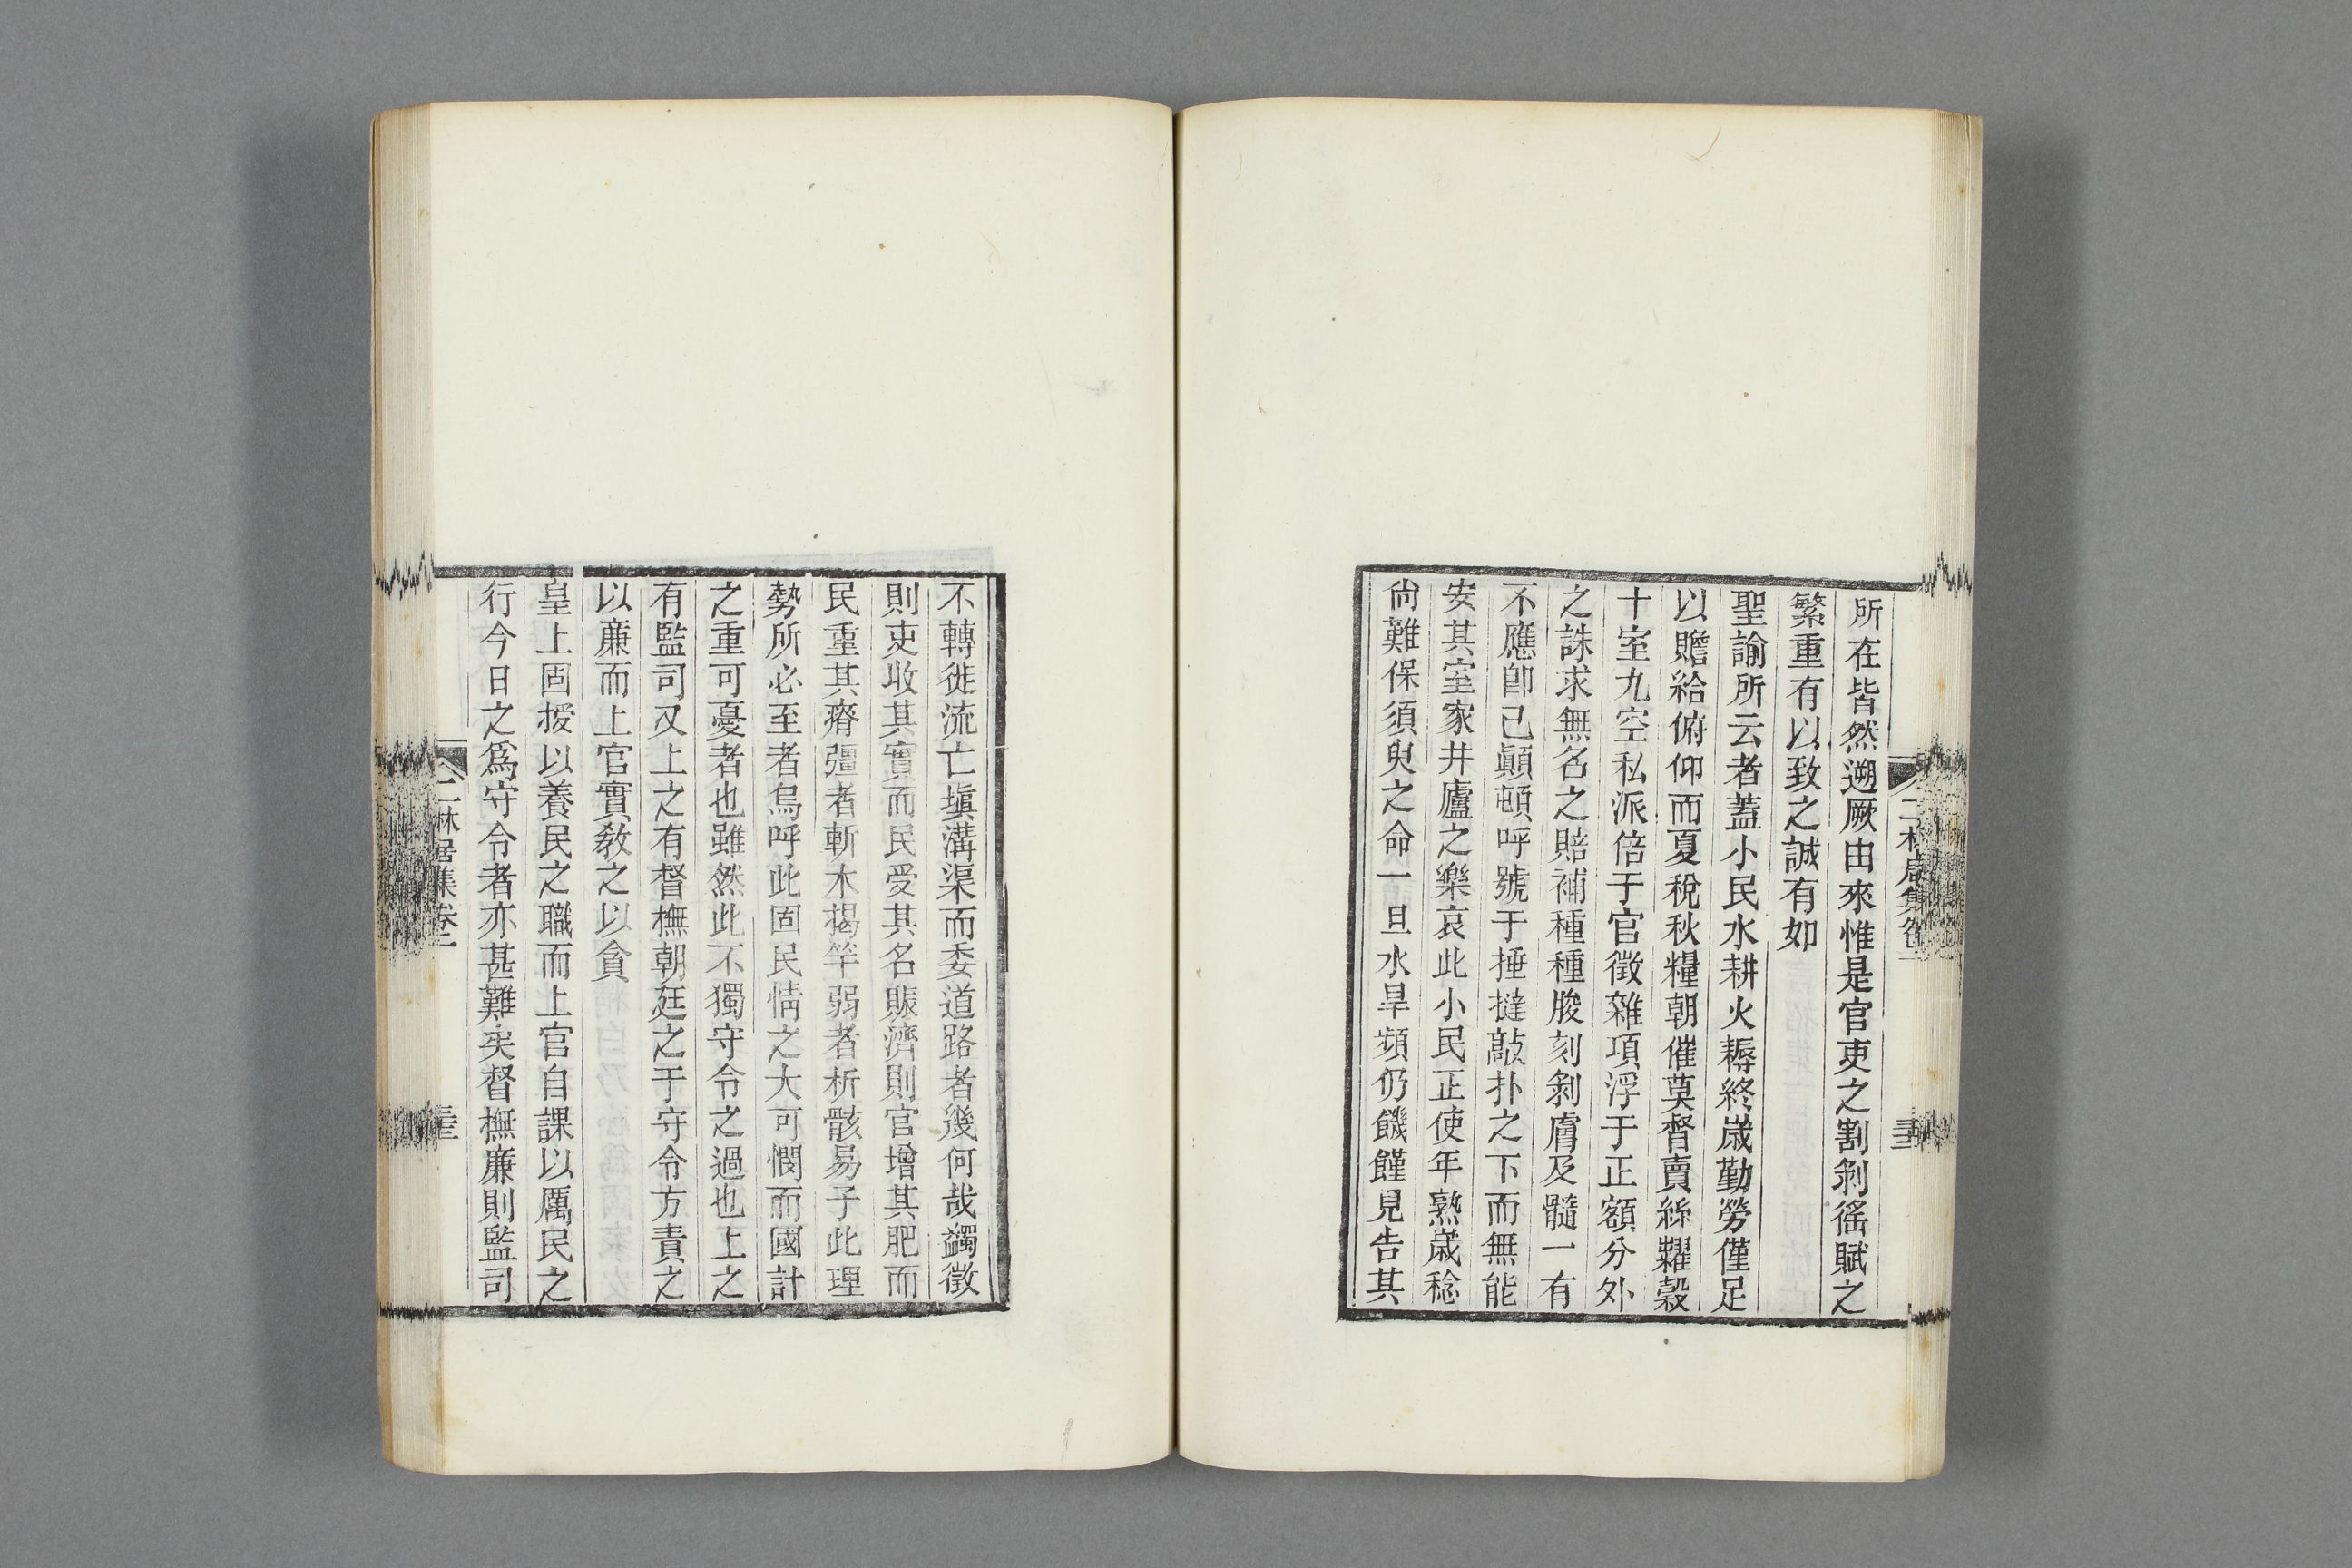 所在皆然遡厥由來惟是官吏之割剝徭賦之
繁重有以致之誠有如
聖諭所云者蓋小民水耕火耨終歲勤勞僅足
以贍給俯仰而夏稅秋糧朝催莫督賣絲糶穀
十室九空私派倍于官徵雜項浮于正額分外
之誅求無名之賠補種種朘刻剝膚及髓一有
不應卽己顚頓呼號于捶撻敲扑之下而無能
安其室家井廬之樂哀此小民正使年熟歲稔
尙難保須臾之命一旦水旱頻仍饑饉見告其
不轉徙流亡塡溝渠而委道路者幾何哉蠲徵
則吏收其實而民受其名賑濟則官增其肥而
民重其瘠彊者斬木揭竿弱者析骸易子此理
勢所必至者烏呼此固民情之大可憫而國計
之重可憂者也雖然此不獨守令之過也上之
有監司又上之有督撫朝廷之于守令方責之
以廉而上官實敎之以貪
皇上固授以養民之職而上官自課以厲民之
行今日之爲守令者亦甚難矣督撫廉則監司
二林居集卷二